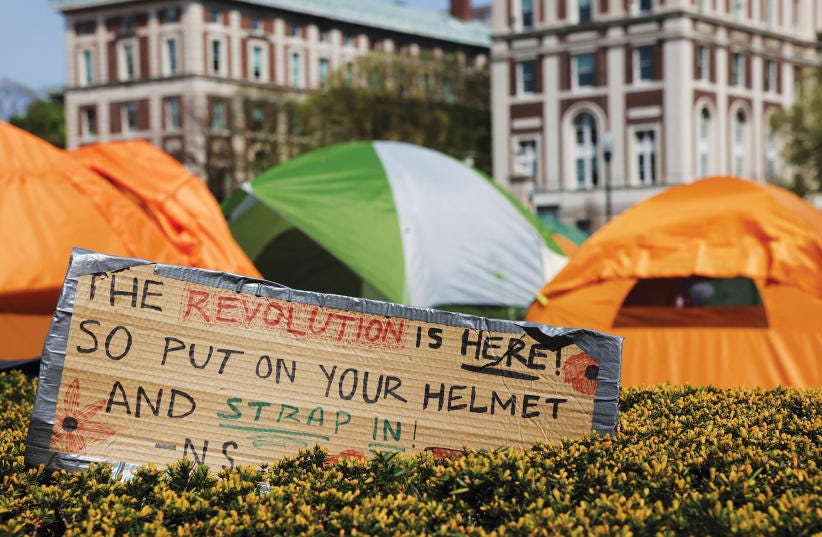 THE REVOLUTION IS HERE!
SO PUT ON YOUR HELMET
AND STRAP IN!
-NS